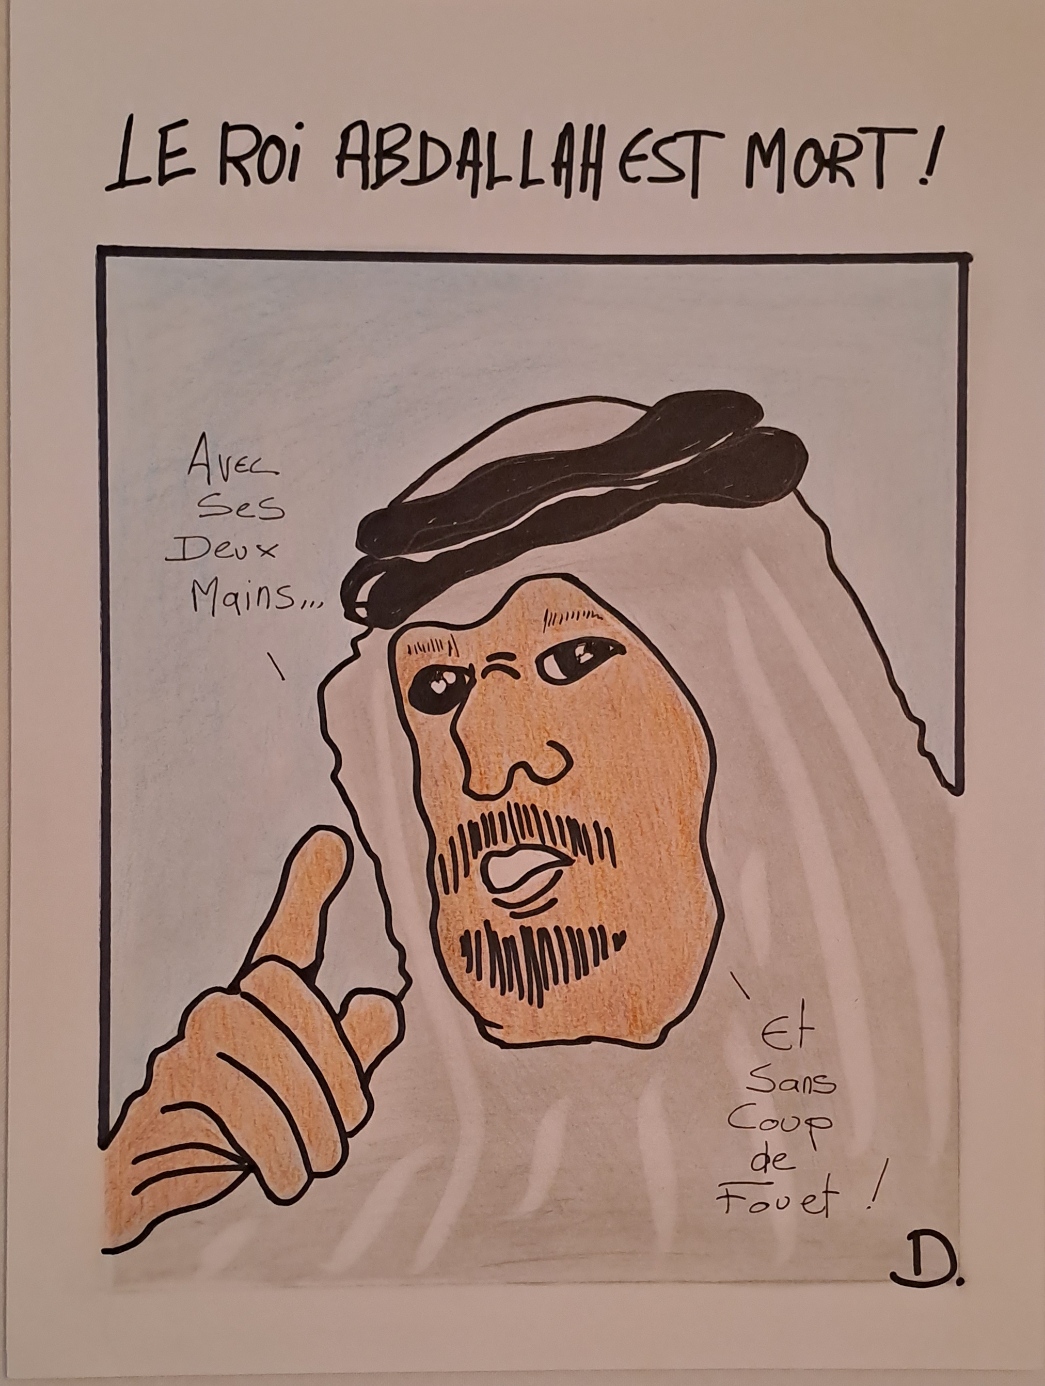 LE ROi ABDALLAH EST MORT !
AVEC
Ses
Deux
Mains...
Et
Sans
Coup
de
Fouet !
D.